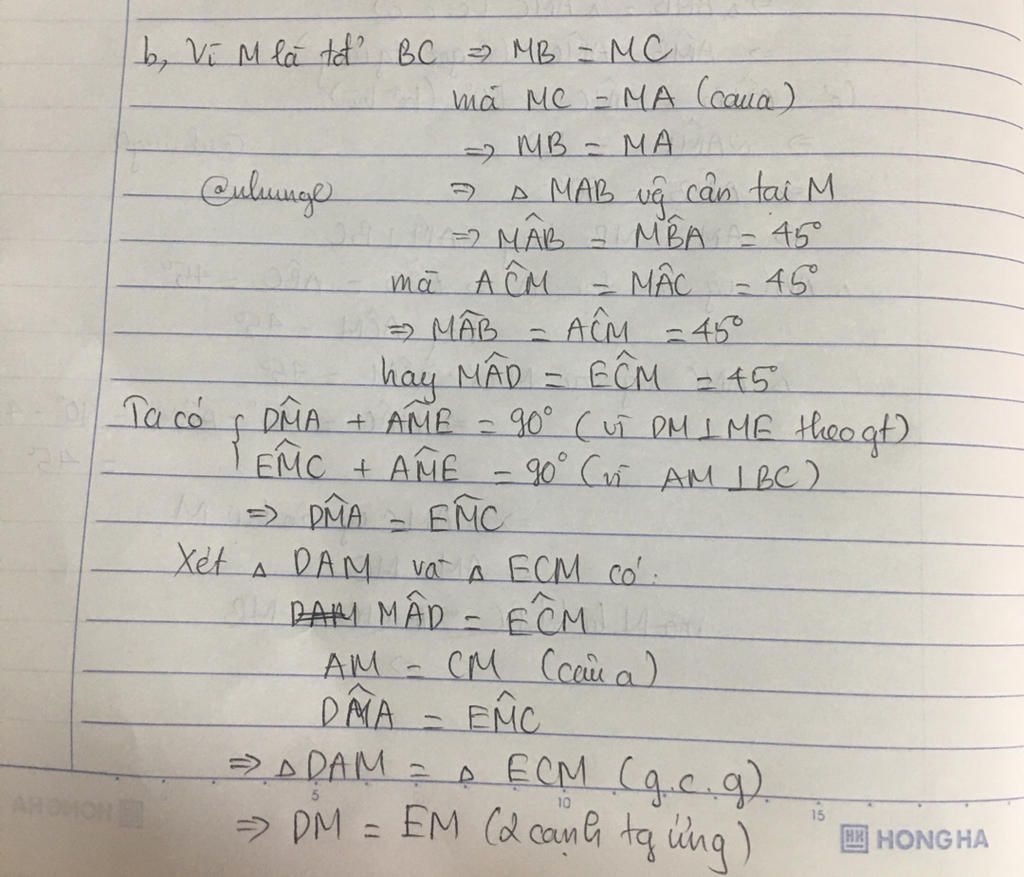 b, Vì M là tđ' BC => MB = MC
mà MC = MA (câu a)
=> MB = MA
@nhunge => △ MAB vg cân tại M
=> MÂB = MB̂A = 45°
mà AĈM = MÂC = 45°
=> MÂB = AĈM = 45°
hay MÂD = EĈM = 45°
Ta có { DM̂A + AM̂E = 90° (vì DM⊥ME theo gt)
EM̂C + AM̂E = 90° (vì AM⊥BC)
=> DM̂A = EM̂C
Xét △ DAM và △ ECM có:
MÂD = EĈM
AM = CM (câu a)
DM̂A = EM̂C
=> △DAM = △ ECM (g.c.g)
5 10 15
=> DM = EM (2 cạnh tg ứng)
HH HONG HA